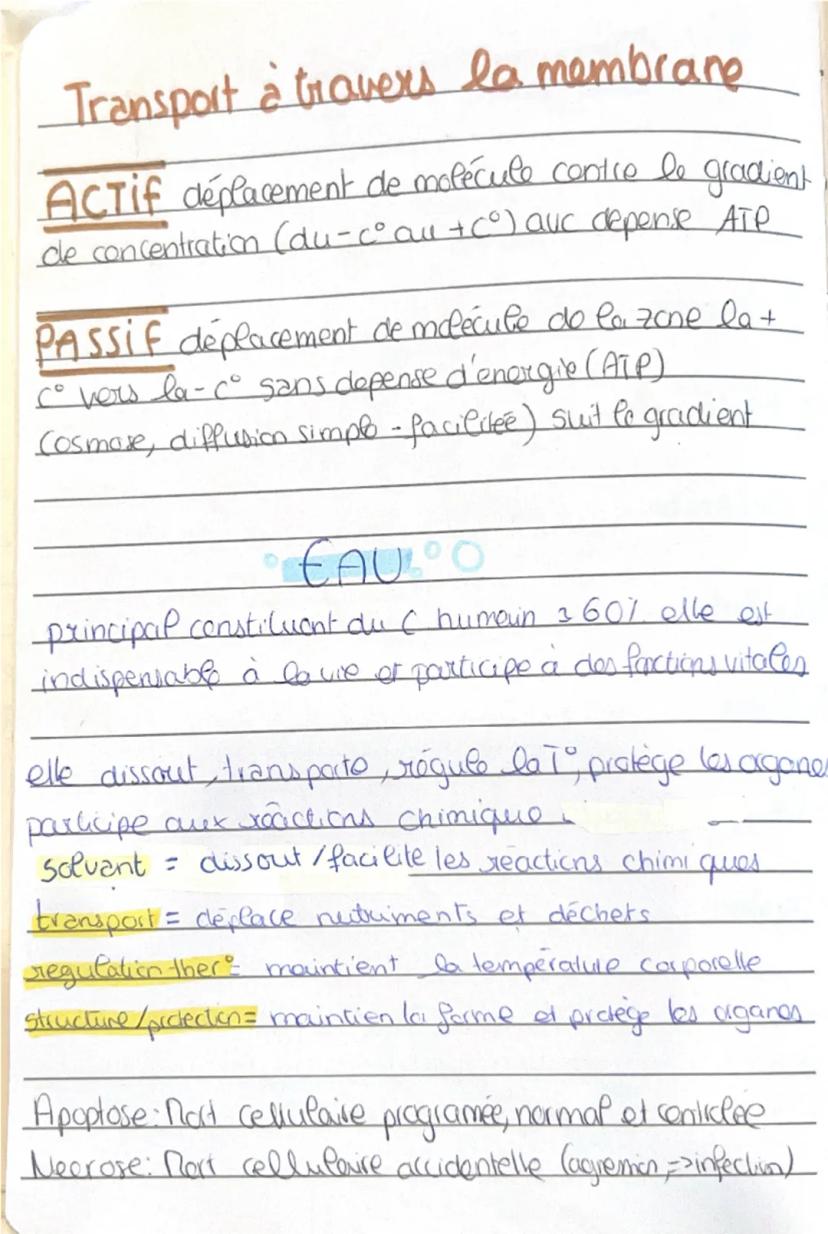 Transport à travers la membrane
ACTif déplacement de molécule contre le gradient
de concentration (du - c° au + c°) avc depense ATP
PASSif déplacement de molécule de la zone la +
c° vers la - c° sans depense d'énergie (ATP)
(osmose, diffusion simple - facilitée) suit le gradient
EAU
principal constituant du C humain 60% elle est
indispensable à la vie et participe à des fonctions vitales
elle dissout, transporte, régule la T°, protège les organe
participe aux réactions chimique.
solvant = dissout / facilite les réactions chimiques
transport = déplace nutriments et déchets
regulation ther° = maintient la température corporelle
structure/protection = maintien la forme et protège les organes
Apoptose : Mort cellulaire programée, normal et contrôlée
Necrose : Mort cellulaire accidentelle (agremion, => infection)